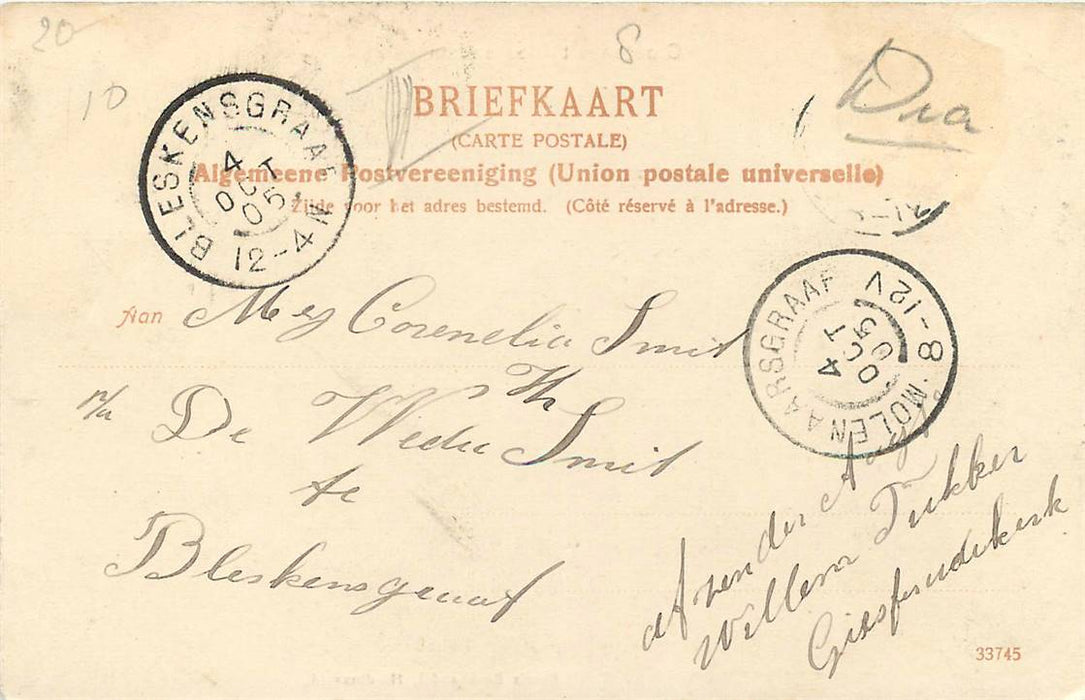 20
10
8
Dra
BRIEFKAART
(CARTE POSTALE)
Algemeene Postvereeniging (Union postale universelle)
Zijde voor het adres bestemd. (Côté réservé à l'adresse.)
BLESKENSGRAAF
4
OCT
05
12-4N
MOLENAARSGRAAF
8-12V
4
OCT
05
Aan Mej Corenelia Smit
p/a De Wedu Th Smit
te
Bleskensgraaf
afzender
Willem Tukker
Giesfenudekerk
33745